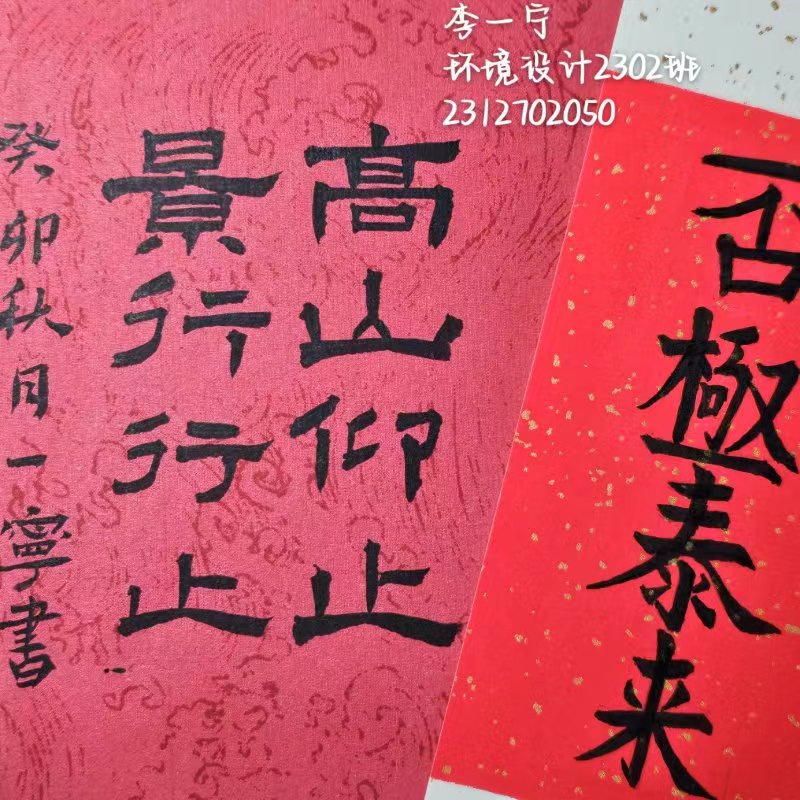 李一宁
环境设计2302班
2312702050
高山仰止
景行行止
癸卯秋月一寧書
否極泰来